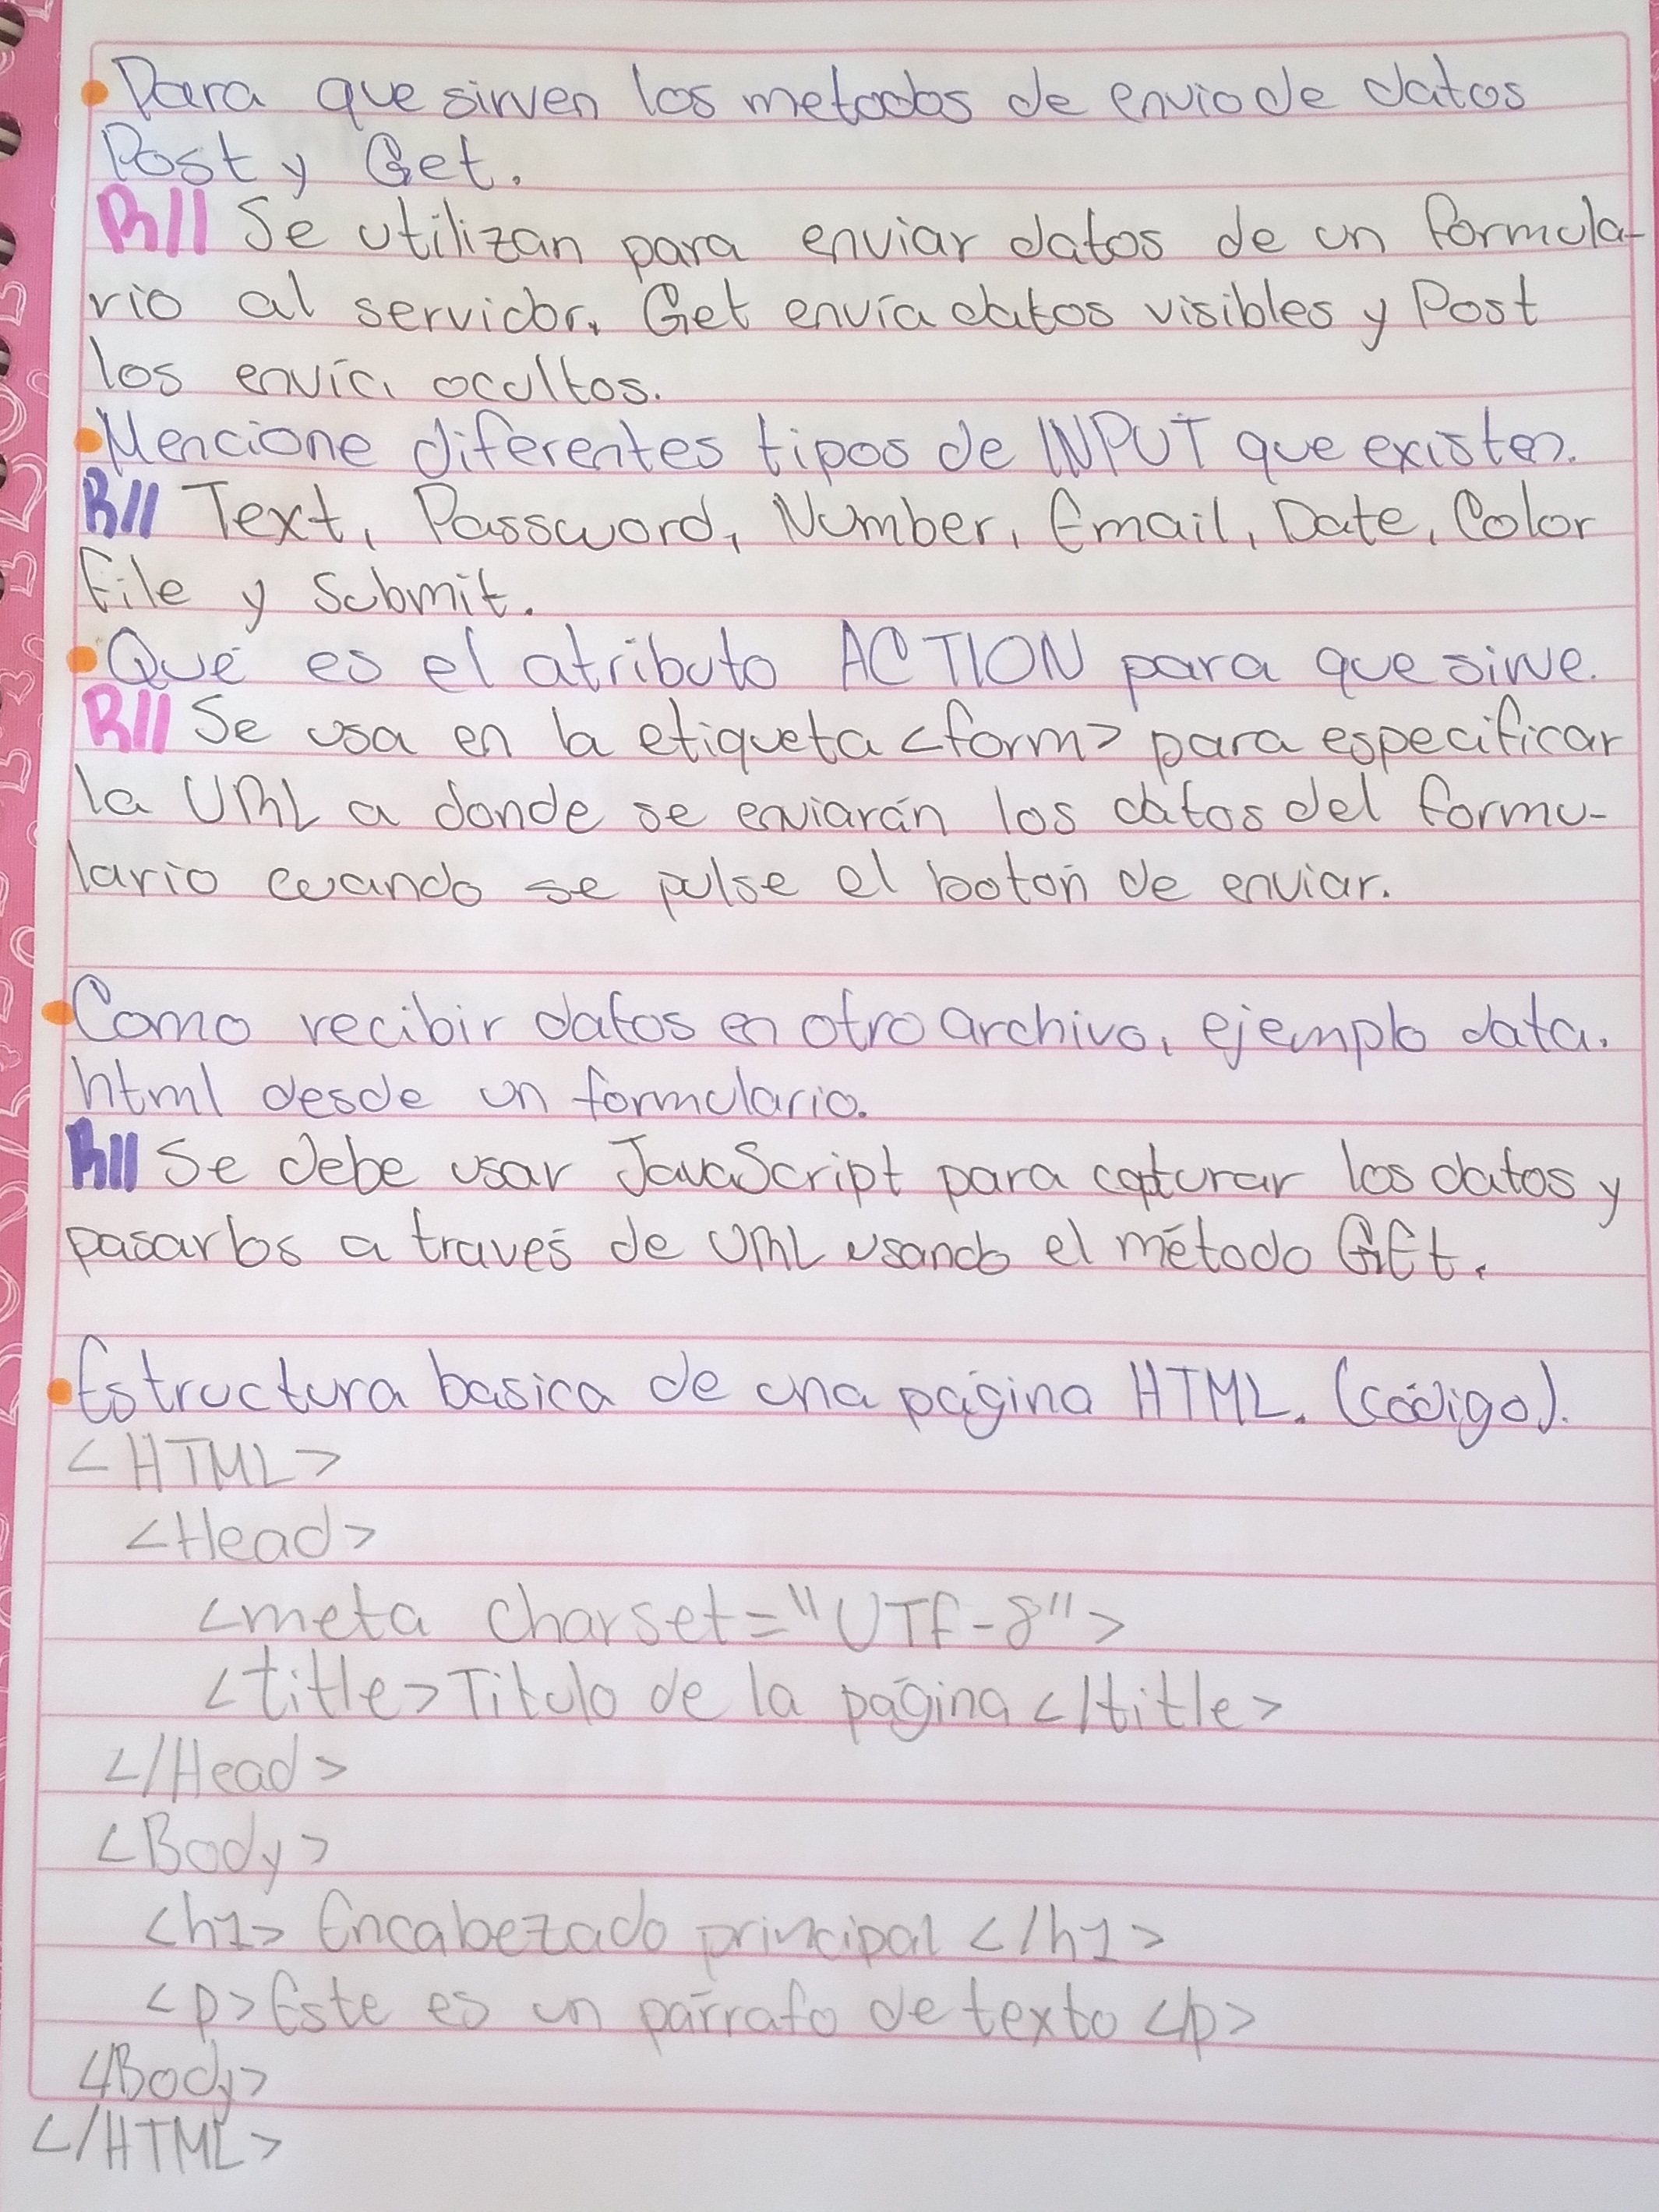 • Para que sirven los metodos de envio de datos
Post y Get.
R// Se utilizan para enviar datos de un formula-
rio al servidor. Get envía datos visibles y Post
los envía ocultos.
• Mencione diferentes tipos de INPUT que existen.
R// Text, Password, Number, Email, Date, Color
File y Submit.
• Qué es el atributo ACTION para que sirve.
R// Se usa en la etiqueta <form> para especificar
la URL a donde se enviarán los datos del formu-
lario cuando se pulse el botón de enviar.
• Como recibir datos en otro archivo, ejemplo data.
html desde un formulario.
R// Se debe usar JavaScript para capturar los datos y
pasarlos a través de URL usando el método GEt.
• Estructura basica de una página HTML. (código).
<HTML>
<Head>
<meta charset="UTF-8">
<title>Titulo de la página </title>
</Head>
<Body>
<h1> Encabezado principal </h1>
<p>Este es un párrafo de texto </p>
</Body>
</HTML>